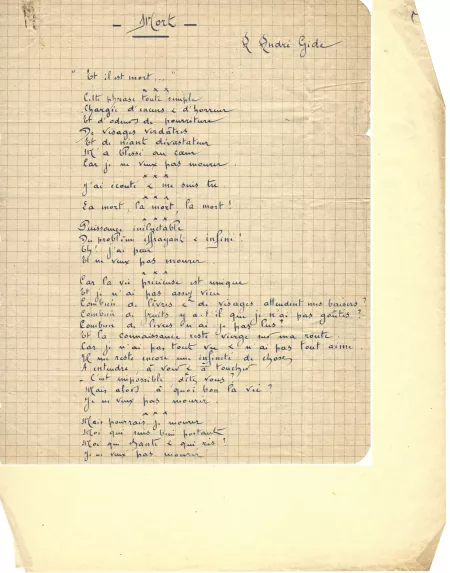 - Mort -
à André Gide
" Et il est mort ... "
* * *
Cette phrase toute simple
Chargée d'encens & d'horreur
Et d'odeurs de pourriture
De visages verdâtres
Et de néant dévastateur
M'a blessé au cœur
Car je ne veux pas mourir.
* * *
J'ai écouté & me suis tu
* * *
La mort, la mort, la mort !
* * *
Puissance inéluctable
Du problème effrayant & infini !
Eh ! j'ai peur
Et ne veux pas mourir
* * *
Car la vie précieuse est unique
Et je n'ai pas assez vécu
Combien de lèvres & de visages attendent mes baisers ?
Combien de fruits y a-t-il que je n'ai pas goûtés ?
Combien de livres n'ai-je pas lus ?
Et la connaissance reste vierge sur ma route
Car je n'ai pas tout vu & n'ai pas tout aimé
Il me reste encore une infinité de choses
A entendre à voir & à toucher
- C'est impossible dites vous ?
Mais alors à quoi bon la vie ?
Je ne veux pas mourir
* * *
Mais pourrais-je mourir
Moi qui suis bien portant
Moi qui chante & qui ris !
Je ne veux pas mourir